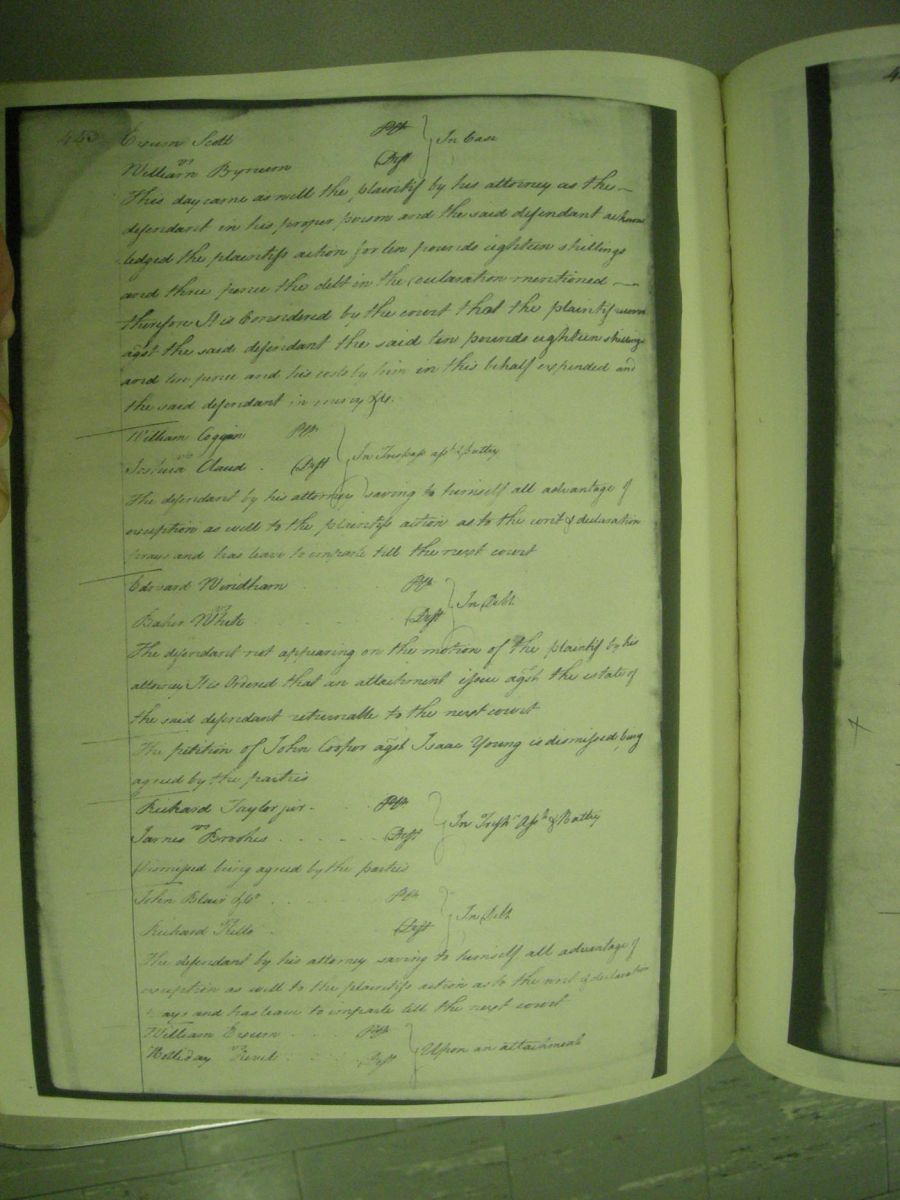 Exum Scott Plt
vs In Case
William Bynum Deft
This day came as well the plaintif by his attorney as the
defendant in his proper person and the said defendant acknow
ledged the plaintifs action for ten pounds eighteen shillings
and three pence the debt in the Declaration mentioned
therefore It is Considered by the court that the plaintif recover
agst the said defendant the said ten pounds eighteen shillings
and pence and his costs by him in this behalf expended and
the said defendant in mercy &c.
William Coggan Plt
vs In Trespass asst & battry
Joshua Claud Deft
The defendant by his attorney saving to himself all advantage of
exception as well to the plaintifs action as to the writ & declaration
prays and has leave to imparle till the next court
Edward Windham Plt
vs In Debt
Baker White Deft
The defendant not appearing on the motion of the plaintif by his
attorney It is Ordered that an attachment issue agst the estate of
the said defendant returnable to the next court
The petition of John Cooper agst Isaac Young is dismissed being
agreed by the parties
Richard Taylor jur Plt
vs In Tresps Asst & Battry
James Brookes Deft
Dismissed being agreed by the parties
John Blair & Co Plt
In Debt
Richard Kello Deft
The defendant by his attorney saving to himself all advantage of
exception as well to the plaintifs action as to the writ & declaration
prays and has leave to imparle till the next court
William Exum Plt
vs Upon an attachment
Holliday Deft